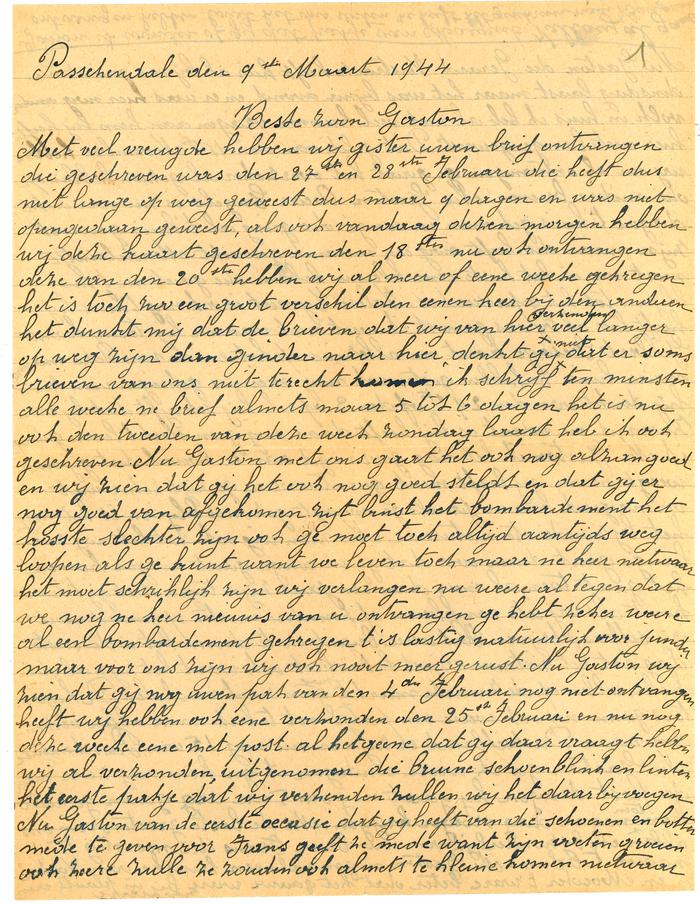 1
Passchendale den 9den Maart 1944
Beste zoon Gaston
Met veel vreugde hebben wij gister uwen brief ontvangen
die geschreven was den 27ste en 28ste Februari die heeft dus
niet lange op weg geweest dus maar 9 dagen en was niet
opengedaan geweest, als ook vandaag dezen morgen hebben
wij deze kaart geschreven den 18sten nu ook ontvangen
deze van den 20ste hebben wij al meer of eene weeke gekregen
het is toch zwo een groot verschil den eenen keer bij den anderen
het dunkt mij dat de brieven dat wij van hier verzenden veel langer
op weg zijn dan ginder naar hier denkt gij niet dat er soms
brieven van ons niet terecht komen ik schrijf ten minsten
alle weeke ne brief almets maar 5 tot 6 dagen het is nu
ook den tweeden van deze week zondag laast heb ik ook
geschreven. Nu Gaston met ons gaat het ook nog alzan goed
en wij zien dat gij het ook nog goed steldt en dat gij er
nog goed van afgekomen zijt buist het bombardement het
koste slechter zijn ook ge moet toch altijd aantijds weg
loopen als ge kunt want we leven toch maar ne keer nietwaar
het moet schrikkelijk zijn wij verlangen nu weere al tegen dat
we nog ne keer nieuws van u ontvangen ge hebt zeker weere
al een bombardement gekregen t'is lastig natuurlijk voor junder
maar voor ons zijn wij ook nooit meer gerust. Nu Gaston wij
zien dat gij nog uwen pak van den 4den Februari nog niet ontvangen
heeft wij hebben ook eene verzonden den 25st Februari en nu nog
deze weeke eene met post. al hetgeene dat gij daar vraagt hebben
wij al verzonden uitgenomen die bruine schoenblink en linten
het eerste pakje dat wij verzenden zullen wij het daar bij voegen
Nu Gaston van de eerste occasie dat gij heeft van die schoenen en botten
mede te geven voor Frans geeft ze mede want zijn voeten groeien
ook zeere zulle ze zouden ook almets te kleine komen nietwaar